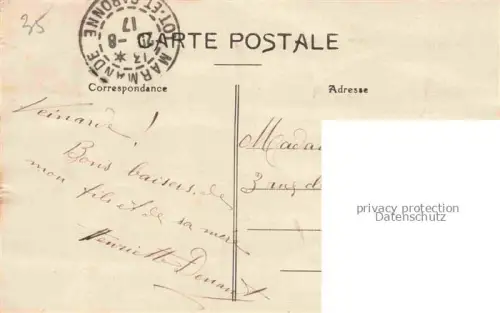 35
MARMANDE LOT-ET-GARONNE
13 * 8
17
CARTE POSTALE
Correspondance
Adresse
Veinarde !
Bons baisers de
mon fils et de sa mère
Henriette
Madam
3 rue de
privacy protection
Datenschutz